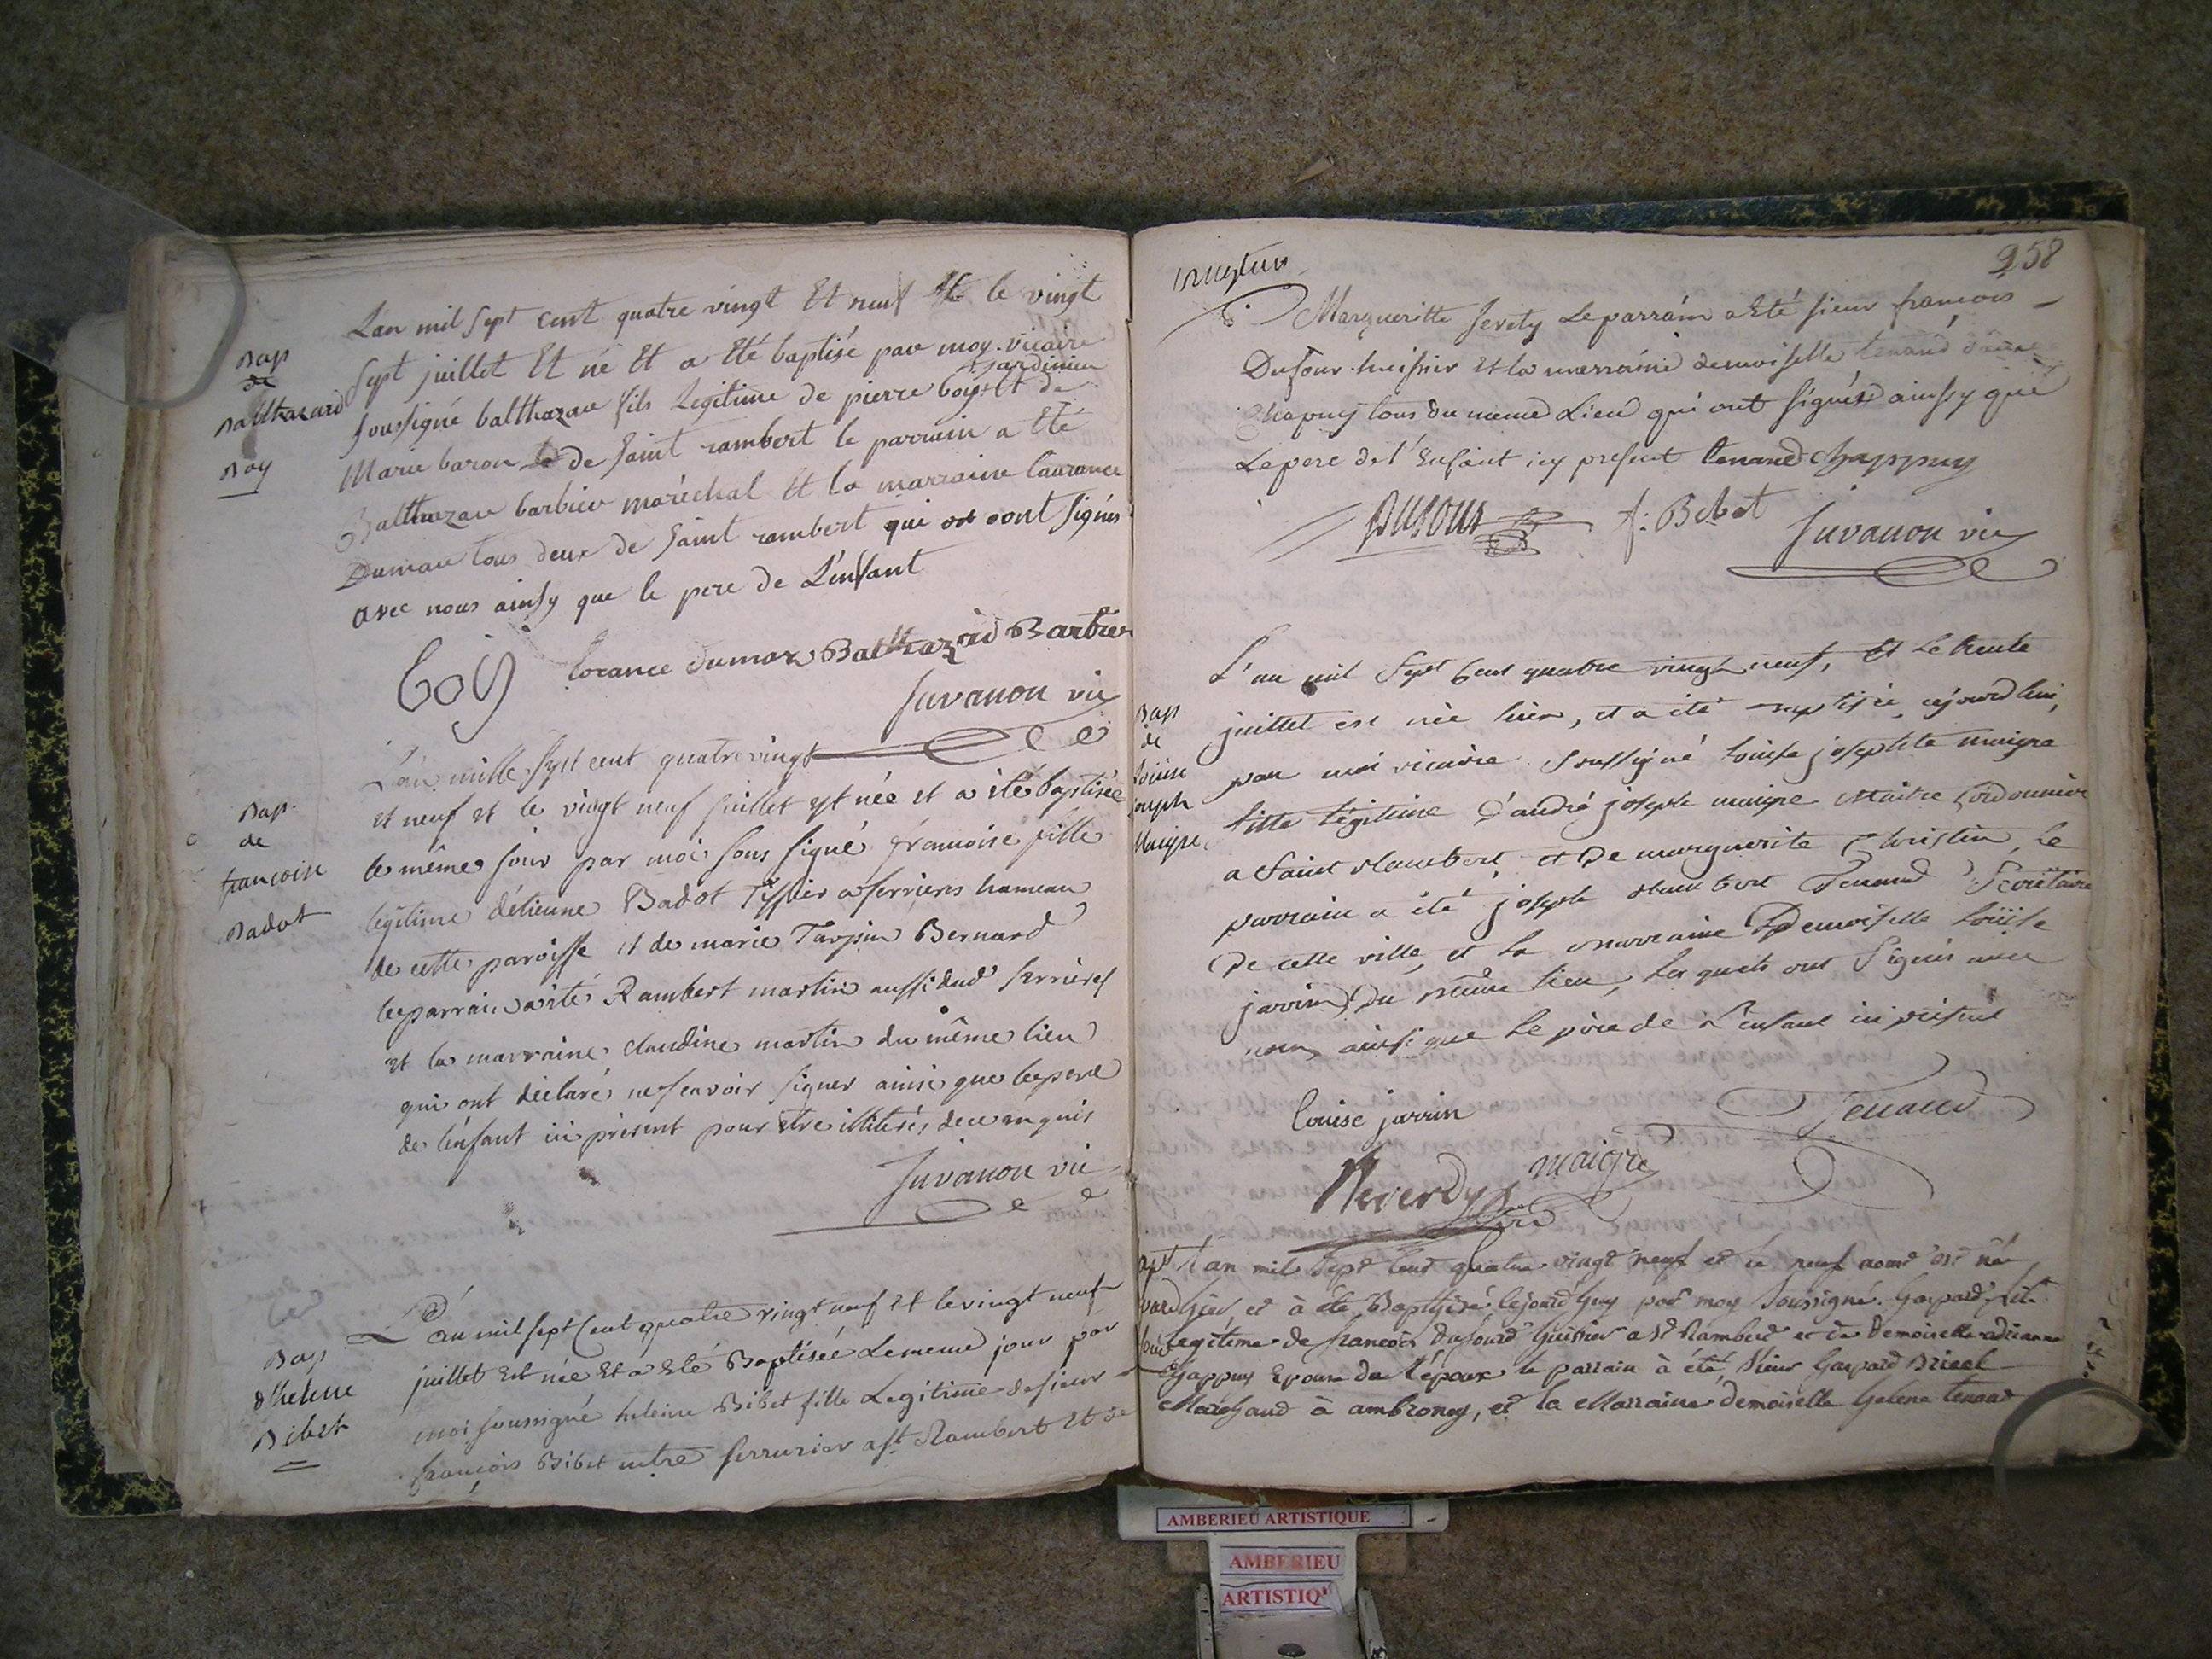 Bap
de
Balthazard
Boy
Lan mil sept cent quatre vingt Et neuf le vingt
sept juillet Et né Et a Eté baptisé par moy vicaire
jardinier
soussigné balthazar fils Legitime de pierre boy Et de
Marie baron de saint rambert le parrain a Eté
Balthazar barbier maréchal Et la marraine laurance
Dumar tous deux de saint rambert qui ont signés
avec nous ainsy que le pere de L'enfant
boy lorance dumar Balthazard Barbier
Juvanon vic
Bap.
de
françoise
Badot
L'an mille sept cent quatrevingt
et neuf et le vingt neuf juillet est née et a été baptisée
le même jour par moi sous signé françoise fille
légitime d'étienne Badot Tissier a serrieres hameau
de cette paroisse et de marie Tarpin Bernard
le parrain a été Rambert martin aussi dud serrieres
et la marraine claudine martin du même lieu
qui ont déclaré ne scavoir signer ainsi que le pere
de l'enfant ici présent pour etre illiterés de ce enquis
Juvanon vic
Bap
d'helene
Bibet
L'an mil sept Cent quatre vingt neuf Et le vingt neuf
juillet Est née Et a Eté Baptisée Le meme jour par
moi soussigné heleine Bibet fille Legitime de sieur
françois Bibet mtre serrurier a st Rambert Et de
258
Margueritte Le parrain a Eté sieur françois
Dufour huissier Et la marraine demoiselle tenand
Chapuy tous du meme Lieu qui ont signés ainsy que
Le pere de l'Enfant icy present tenand Chappuy
Dufour f: Bibet Juvanon vic
Bap
de
Loüise
joseph
Maigre
L'an mil sept Cent quatre vingt neuf, Et Le trente
juillet est née hier, et a été baptisée cejourd'hui,
par moi vicaire soussigné Louise josephte maigre
fille légitime d'andré joseph maigre Maitre Cordonnier
a Saint Rambert, et De marguerite Christin, Le
parrain a été joseph Rambert Tenand Secrétaire
De cette ville, et la marraine Demoiselle Loüise
jarrin Du même lieu, lesquels ont signés avec
nous, ainsi que Le père de L'enfant ici présent
louise jarrin Tenand
maigre
Reverdy
L'an mil sept Cent quatre vingt neuf et le neuf aout est né
hier et à été Baptisé Cejourd'huy par moy Soussigné. Gaspard fils
Legitime de francois Dufour huissier a St Rambert et de Demoiselle adrianne
Chappuy Epouse du l'époux le parrain à été, Sieur Gaspard
Marchand à ambronay, et la Marraine demoiselle helene tenand
AMBERIEU ARTISTIQUE
AMBERIEU
ARTISTIQ'